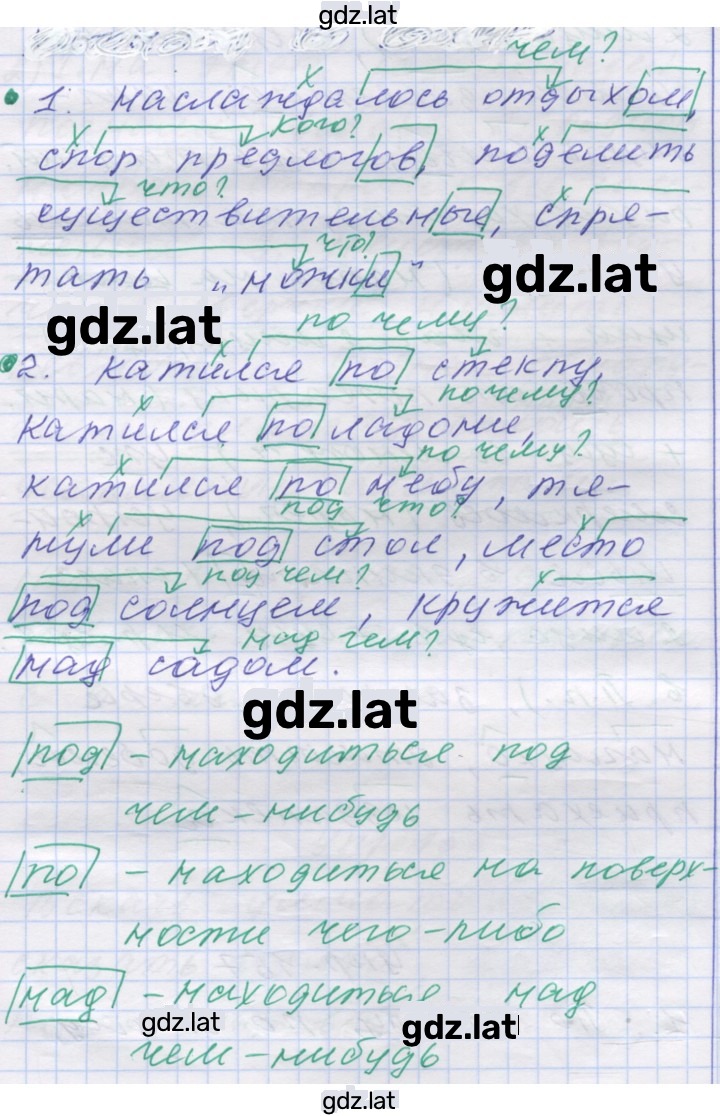 gdz.lat
чем?
1. наслаждалось отдыхом,
кого?
спор предлогов, поделить
что?
существительные, спря-
что?
тать „ножки"
gdz.lat
gdz.lat
по чему?
2. катился по стеклу,
по чему?
катился по ладони,
по чему?
катился по небу, тя-
под что?
нули под стол, место
под чем?
под солнцем, кружится
над чем?
над садом.
gdz.lat
под - находиться под
чем-нибудь
по - находиться на поверх-
ности чего-либо
над - находиться над
gdz.lat
gdz.lat
чем-нибудь
gdz.lat